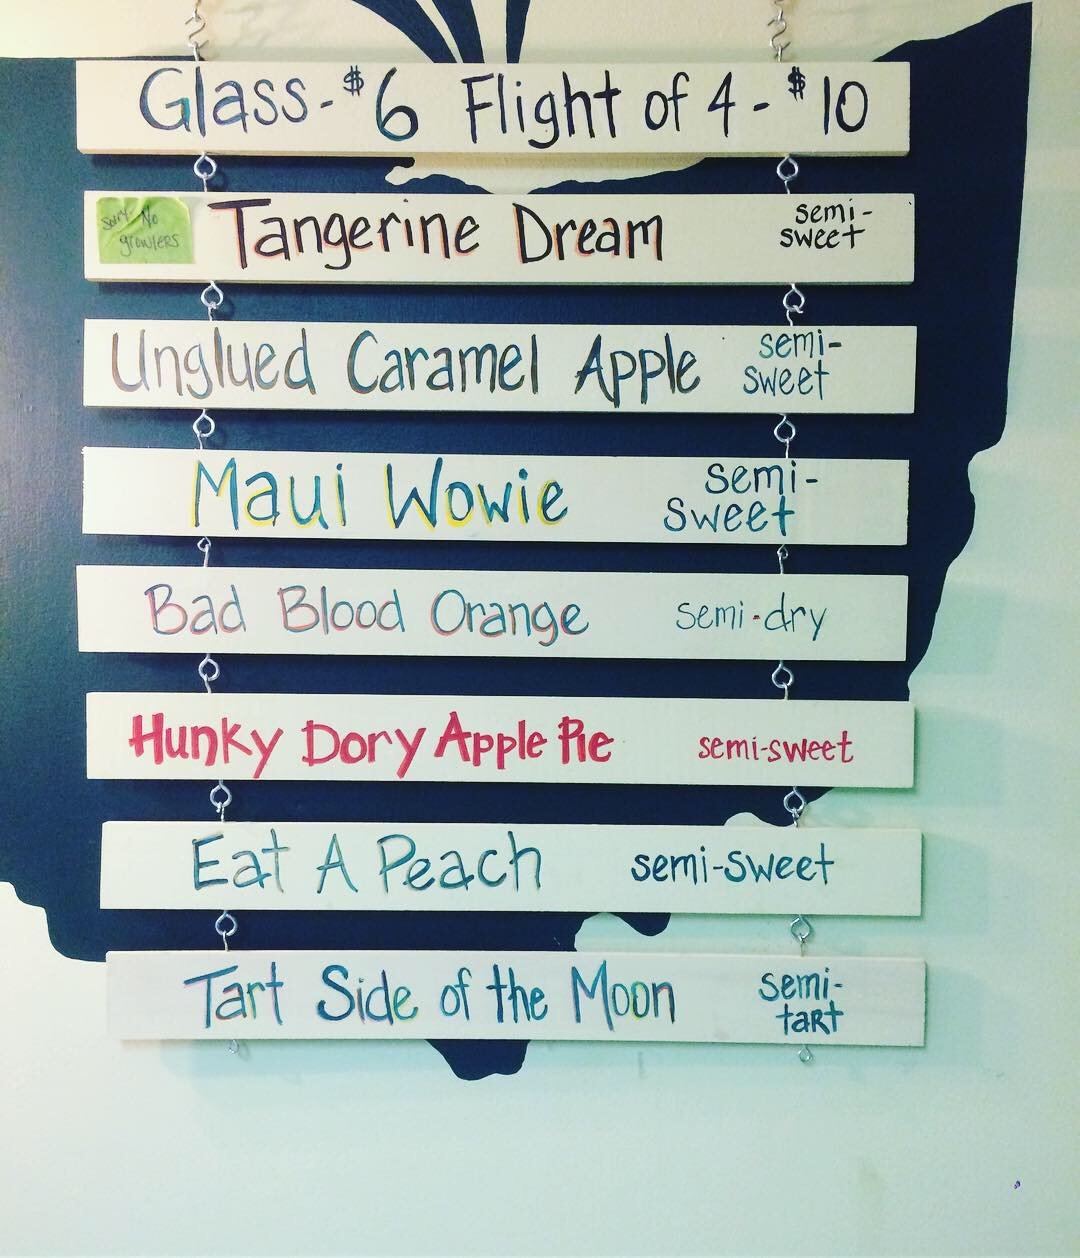 Glass - $6 Flight of 4 - $10
Sorry No
growlers
Tangerine Dream
semi-
sweet
Unglued Caramel Apple
semi-
sweet
Maui Wowie
semi-
sweet
Bad Blood Orange semi-dry
Hunky Dory Apple Pie semi-sweet
Eat A Peach semi-sweet
Tart Side of the Moon
semi-
tart